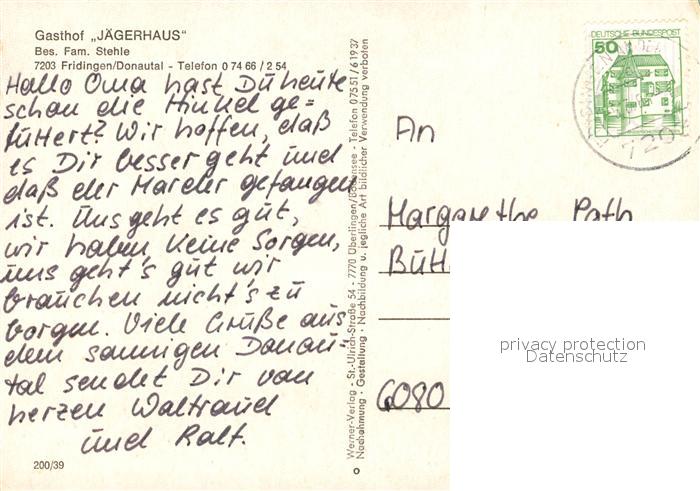 Gasthof „JÄGERHAUS"
Bes. Fam. Stehle
7203 Fridingen/Donautal - Telefon 0 74 66 / 2 54
Hallo Oma hast Du heute
schon die Hinkel ge=
futtert? Wir hoffen, daß
es Dir besser geht und
daß der Marder gefangen
ist. Uns geht es gut,
wir haben keine Sorgen,
uns geht's gut wir
brauchen nicht's zu
borgen. Viele Grüße aus
dem sonnigen Donau=
tal sendet Dir von
herzen Waltraud
und Ralf.
200/39
Werner-Verlag - St.-Ulrich-Straße 54 - 7770 Überlingen/Bodensee - Telefon 07551/61937
Nachahmung · Gestaltung · Nachbildung u. jegliche Art bildlicher Verwendung verboten
DEUTSCHE BUNDESPOST
50
720
An
Margarethe Path
6080
privacy protection
Datenschutz